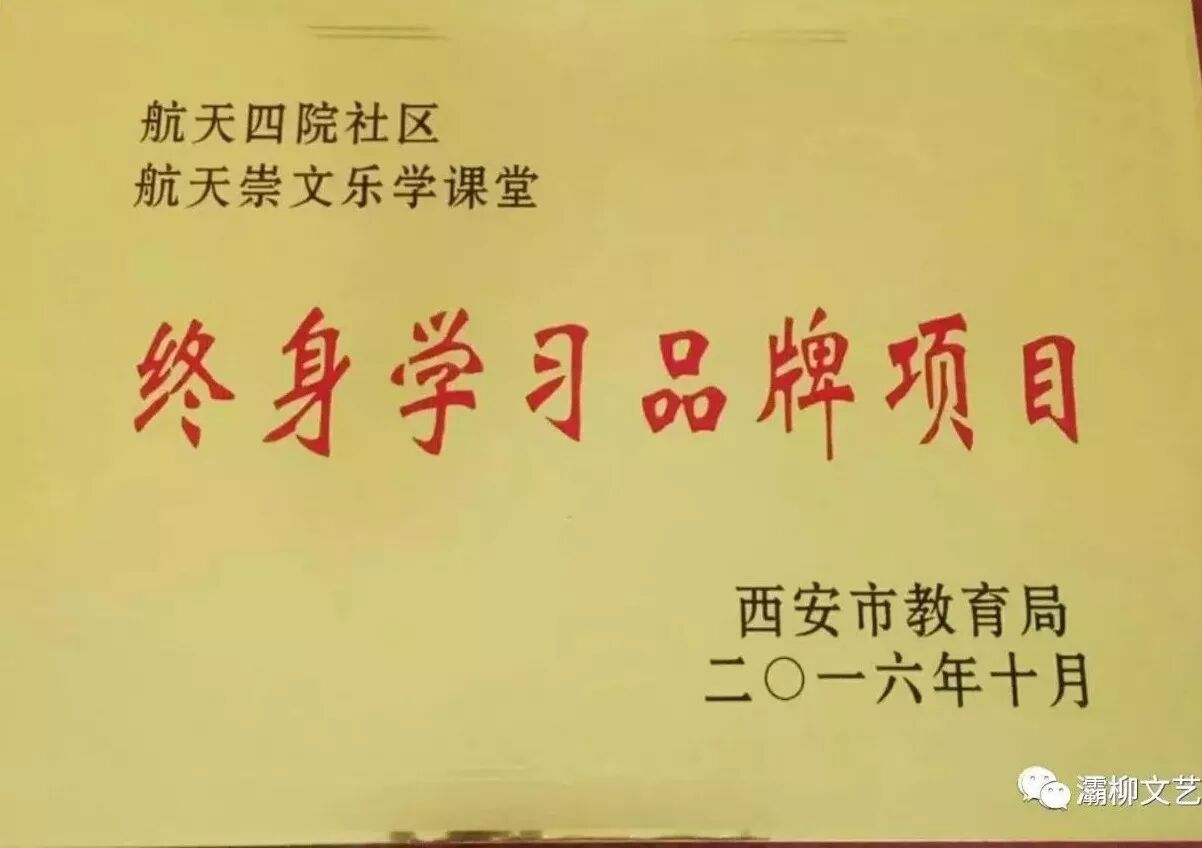 航天四院社区
航天崇文乐学课堂
终身学习品牌项目
西安市教育局
二〇一六年十月
灞柳文艺